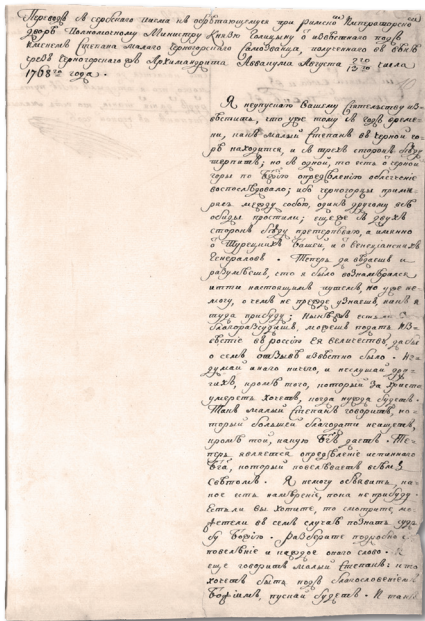 Переводъ съ сербскаго писма къ обретающемуся при Римско Императорскомъ
дворѣ Полномочному Министру Князю Голицыну о известномъ подъ
именемъ Степана малаго Черногорскаго Самозванца, полученнаго въ Вѣнѣ
чрезъ черногорскаго Архимандрита Аввакума Августа числа
1768го года.
Я неупускаю Вашему Сіятельству из-
вѣстить, что уже тому годъ време-
ни, какъ малый Степанъ въ черной го-
рѣ находится, и съ трехъ сторонъ бѣду
терпитъ; но съ одной, то есть съ черной
горы по Божію опредѣленію облегченіе
воспослѣдовало; ибо черногорцы прими-
рясь между собою, одинъ другому всѣ
обиды простили; еще же съ двухъ
сторонъ бѣду претерпеваю, а именно
о Турецкихъ Пашей, и о Венеціанскихъ
Генераловъ. Теперь да вѣдаешъ и
разумѣешъ, что я было вознамѣрился
итти настоящимъ путемъ, но уже не
могу, о чемъ не прежде узнаешъ, какъ я
туда прибуду; Нынѣ естьли
благоразсудишъ, можешъ подать из-
вѣстіе въ россію Ея величеству, дабы
о семъ отзывъ извѣстно было. Не
думай инаго ничего, и неслушай дру-
гихъ, кромѣ того, который за христа
умереть хочетъ, когда нужда будетъ.
Такъ малый Степанъ говоритъ, ко-
торый большей благодати неищетъ,
кромѣ той, какую Богъ дастъ. Те-
перь является опредѣленіе истиннаго
Бога, который повелѣваетъ всѣмъ
Свѣтомъ. Я немогу объявить, ка-
кое есть намѣреніе, пока не прибуду.
Естьли вы хотите, то смотрите, мо-
жетели въ семъ случаѣ познать судь-
бу Божію. Разберите подробно
повелѣніе и каждое онаго слово. И
еще говоритъ малый Степанъ: кто
хочетъ быть подъ благословеніемъ
Божіимъ, пускай будетъ. И такъ